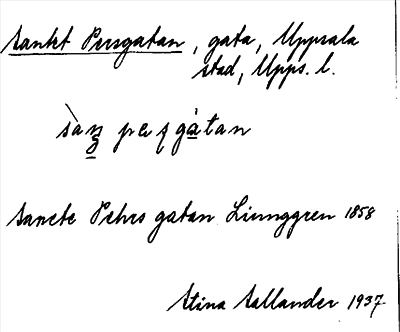 Sankt Persgatan, gata, Uppsala
stad, Upps. l.
Sancte Pehrs gatan Liunggren 1858
Stina Sallander 1937